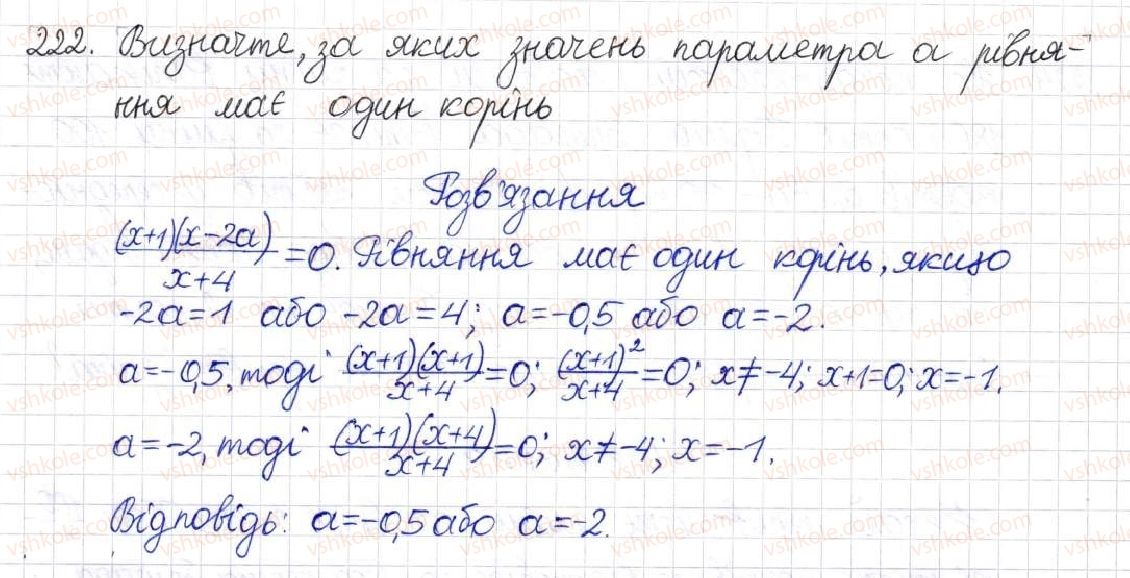 222. Визначте, за яких значень параметра а рівня-
ння має один корінь
Розв'язання
(x+1)(x-2a)/x+4 = 0. Рівняння має один корінь, якщо
-2a=1 або -2a=4; a=-0,5 або a=-2.
a=-0,5, тоді (x+1)(x+1)/x+4 =0; (x+1)²/x+4 =0; x≠-4; x+1=0; x=-1.
a=-2, тоді (x+1)(x+4)/x+4 =0; x≠-4; x=-1.
Відповідь: a=-0,5 або a=-2.